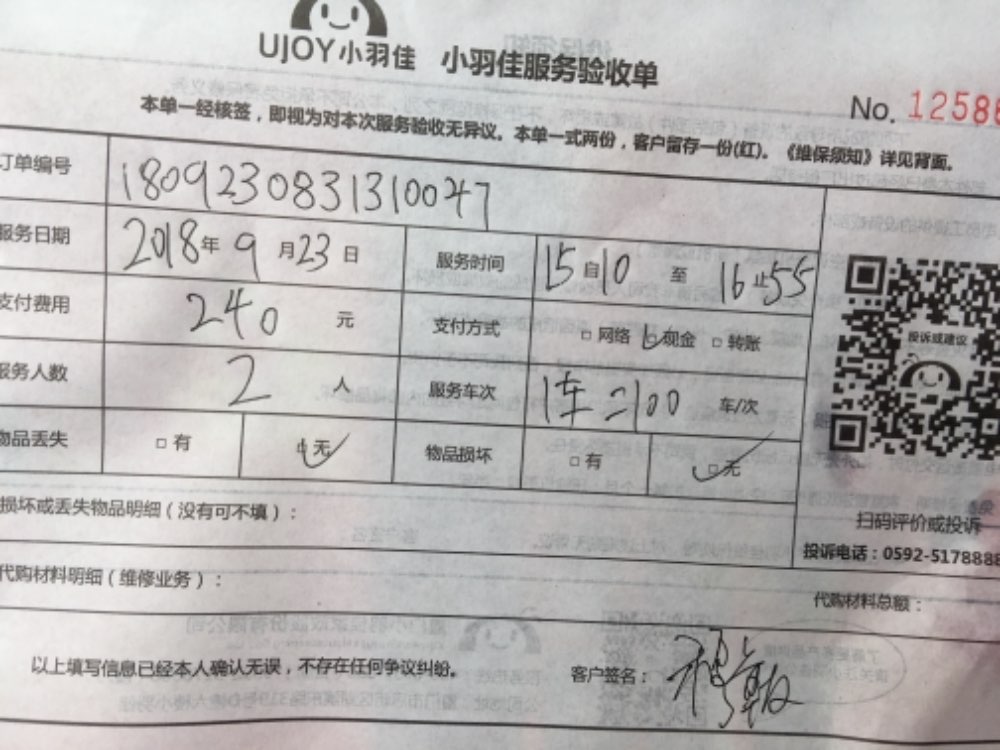 UJOY小羽佳 小羽佳服务验收单
No. 12586
本单一经核签，即视为对本次服务验收无异议。本单一式两份，客户留存一份(红)。《维保须知》详见背面。
订单编号 1809230831310047
服务日期 2018年9月23日 服务时间 15自10至16止55
支付费用 240元 支付方式 □网络 □现金 □转账
服务人数 2人 服务车次 1车=100 车/次
物品丢失 □有 □无 物品损坏 □有 □无
投诉或建议
扫码评价或投诉
投诉电话：0592-5178888
损坏或丢失物品明细（没有可不填）：
代购材料明细（维修业务）：
代购材料总额：
以上填写信息已经本人确认无误，不存在任何争议纠纷。 客户签名：